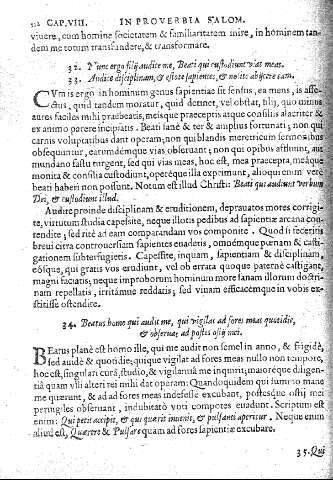 512 CAP. VIII. IN PROVERBIA SALOM.
vivere, cum homine societatem & familiaritatem inire, in hominem tan-
dem me totum transfundere, & transformare.
32. Nunc ergo filij audite me, Beati qui custodiunt vias meas.
33. Audite disciplinam, & estote sapientes, et nolite abijcere eam.
CVm is ergo in hominum genus sapientiæ sit sensus, ea mens, is affe-
ctus, quid tandem moratur, quid detinet, vel obstat, filij, quo minus
aures faciles mihi præbeatis, meisque præceptis atque consiliis alacriter &
ex animo parere incipiatis. Beati sanè ter & amplius fortunati; non qui
carnis voluptatibus dant operam; non qui blandis meretricum sermonibus
obsequuntur, earumdémque vias observant; non qui opibus affluunt, aut
mundano fastu turgent, sed qui vias meas, hoc est, mea præcepta, meáque
monita & consilia custodiunt, operéque illa exprimunt, alioqui enim verè
beati haberi non possunt. Notum est illud Christi: Beati qui audiunt verbum
Dei, & custodiunt illud.
Audire proinde disciplinam & eruditionem, depravatos mores corrigi-
te, virtutum studia capessite, neque illotis pedibus ad sapientiæ arcana con-
tendite, sed ritè ad eam comparandam vos componite. Quod si feceritis
brevi citra controversiam sapientes evadetis, omnémque pœnam & casti-
gationem subterfugietis. Capessite, inquam, sapientiam & disciplinam,
eósque, qui gratis vos erudiunt, vel ob errata quoque paternè castigant,
magni faciatis; neque improborum hominum more sanam illorum doctri-
nam repellatis, irritámue reddatis; sed vivam efficacémque in vobis ex-
stitisse ostendite.
34. Beatus homo qui audit me, qui vigilat ad fores meas quotidie,
& observat ad postes ostij mei.
BEatus planè est homo ille, qui me audit non semel in anno, & frigidè,
sed avidè & quotidie; quique vigilat ad fores meas nullo non tempore,
hoc est, singulari cura, studio, & vigilantiâ me inquirit; maiorémque diligen-
tiâ quam vlli alteri rei mihi dat operam: Quandoquidem qui summo mane
me quærunt, & ad ad fores meas indefessè excubant, postesque ostij mei
pervigiles observant, indubitatò voti compotes evadunt. Scriptum est
enim: Qui petit accipit, & qui quærit invenit, & pulsanti aperitur. Neque enim
aliud est, Quærere & Pulsare quam ad fores sapientiæ excubare.
35. Qui